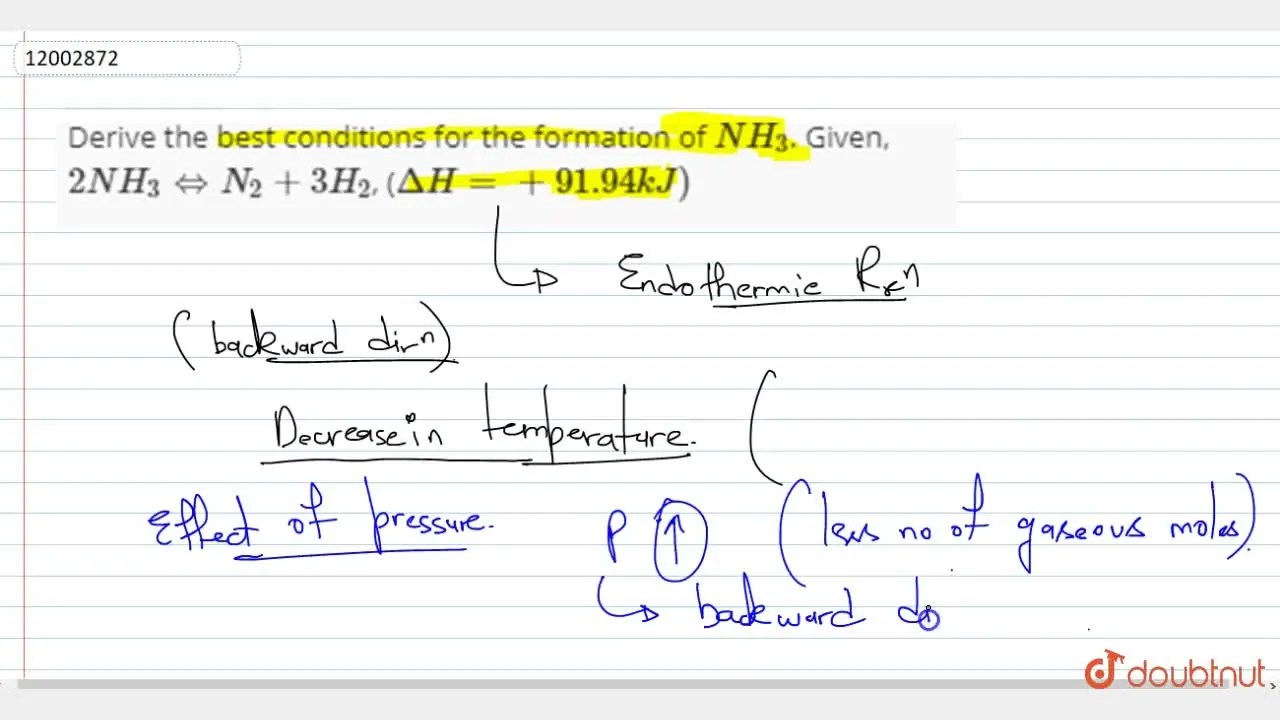 12002872
Derive the best conditions for the formation of NH₃. Given,
2NH₃ ⇔ N₂ + 3H₂, (ΔH = +91.94kJ)
Endothermic Rxⁿ
(backward dirⁿ)
Decrease in temperature. (
Effect of pressure. P ↑ (less no of gaseous moles).
backward di
doubtnut